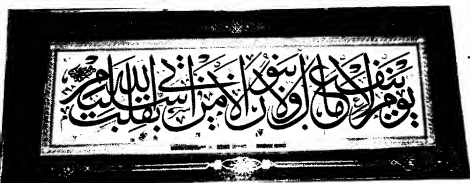 يوم لا ينفع مال ولا بنون إلا من أتى الله بقلب سليم